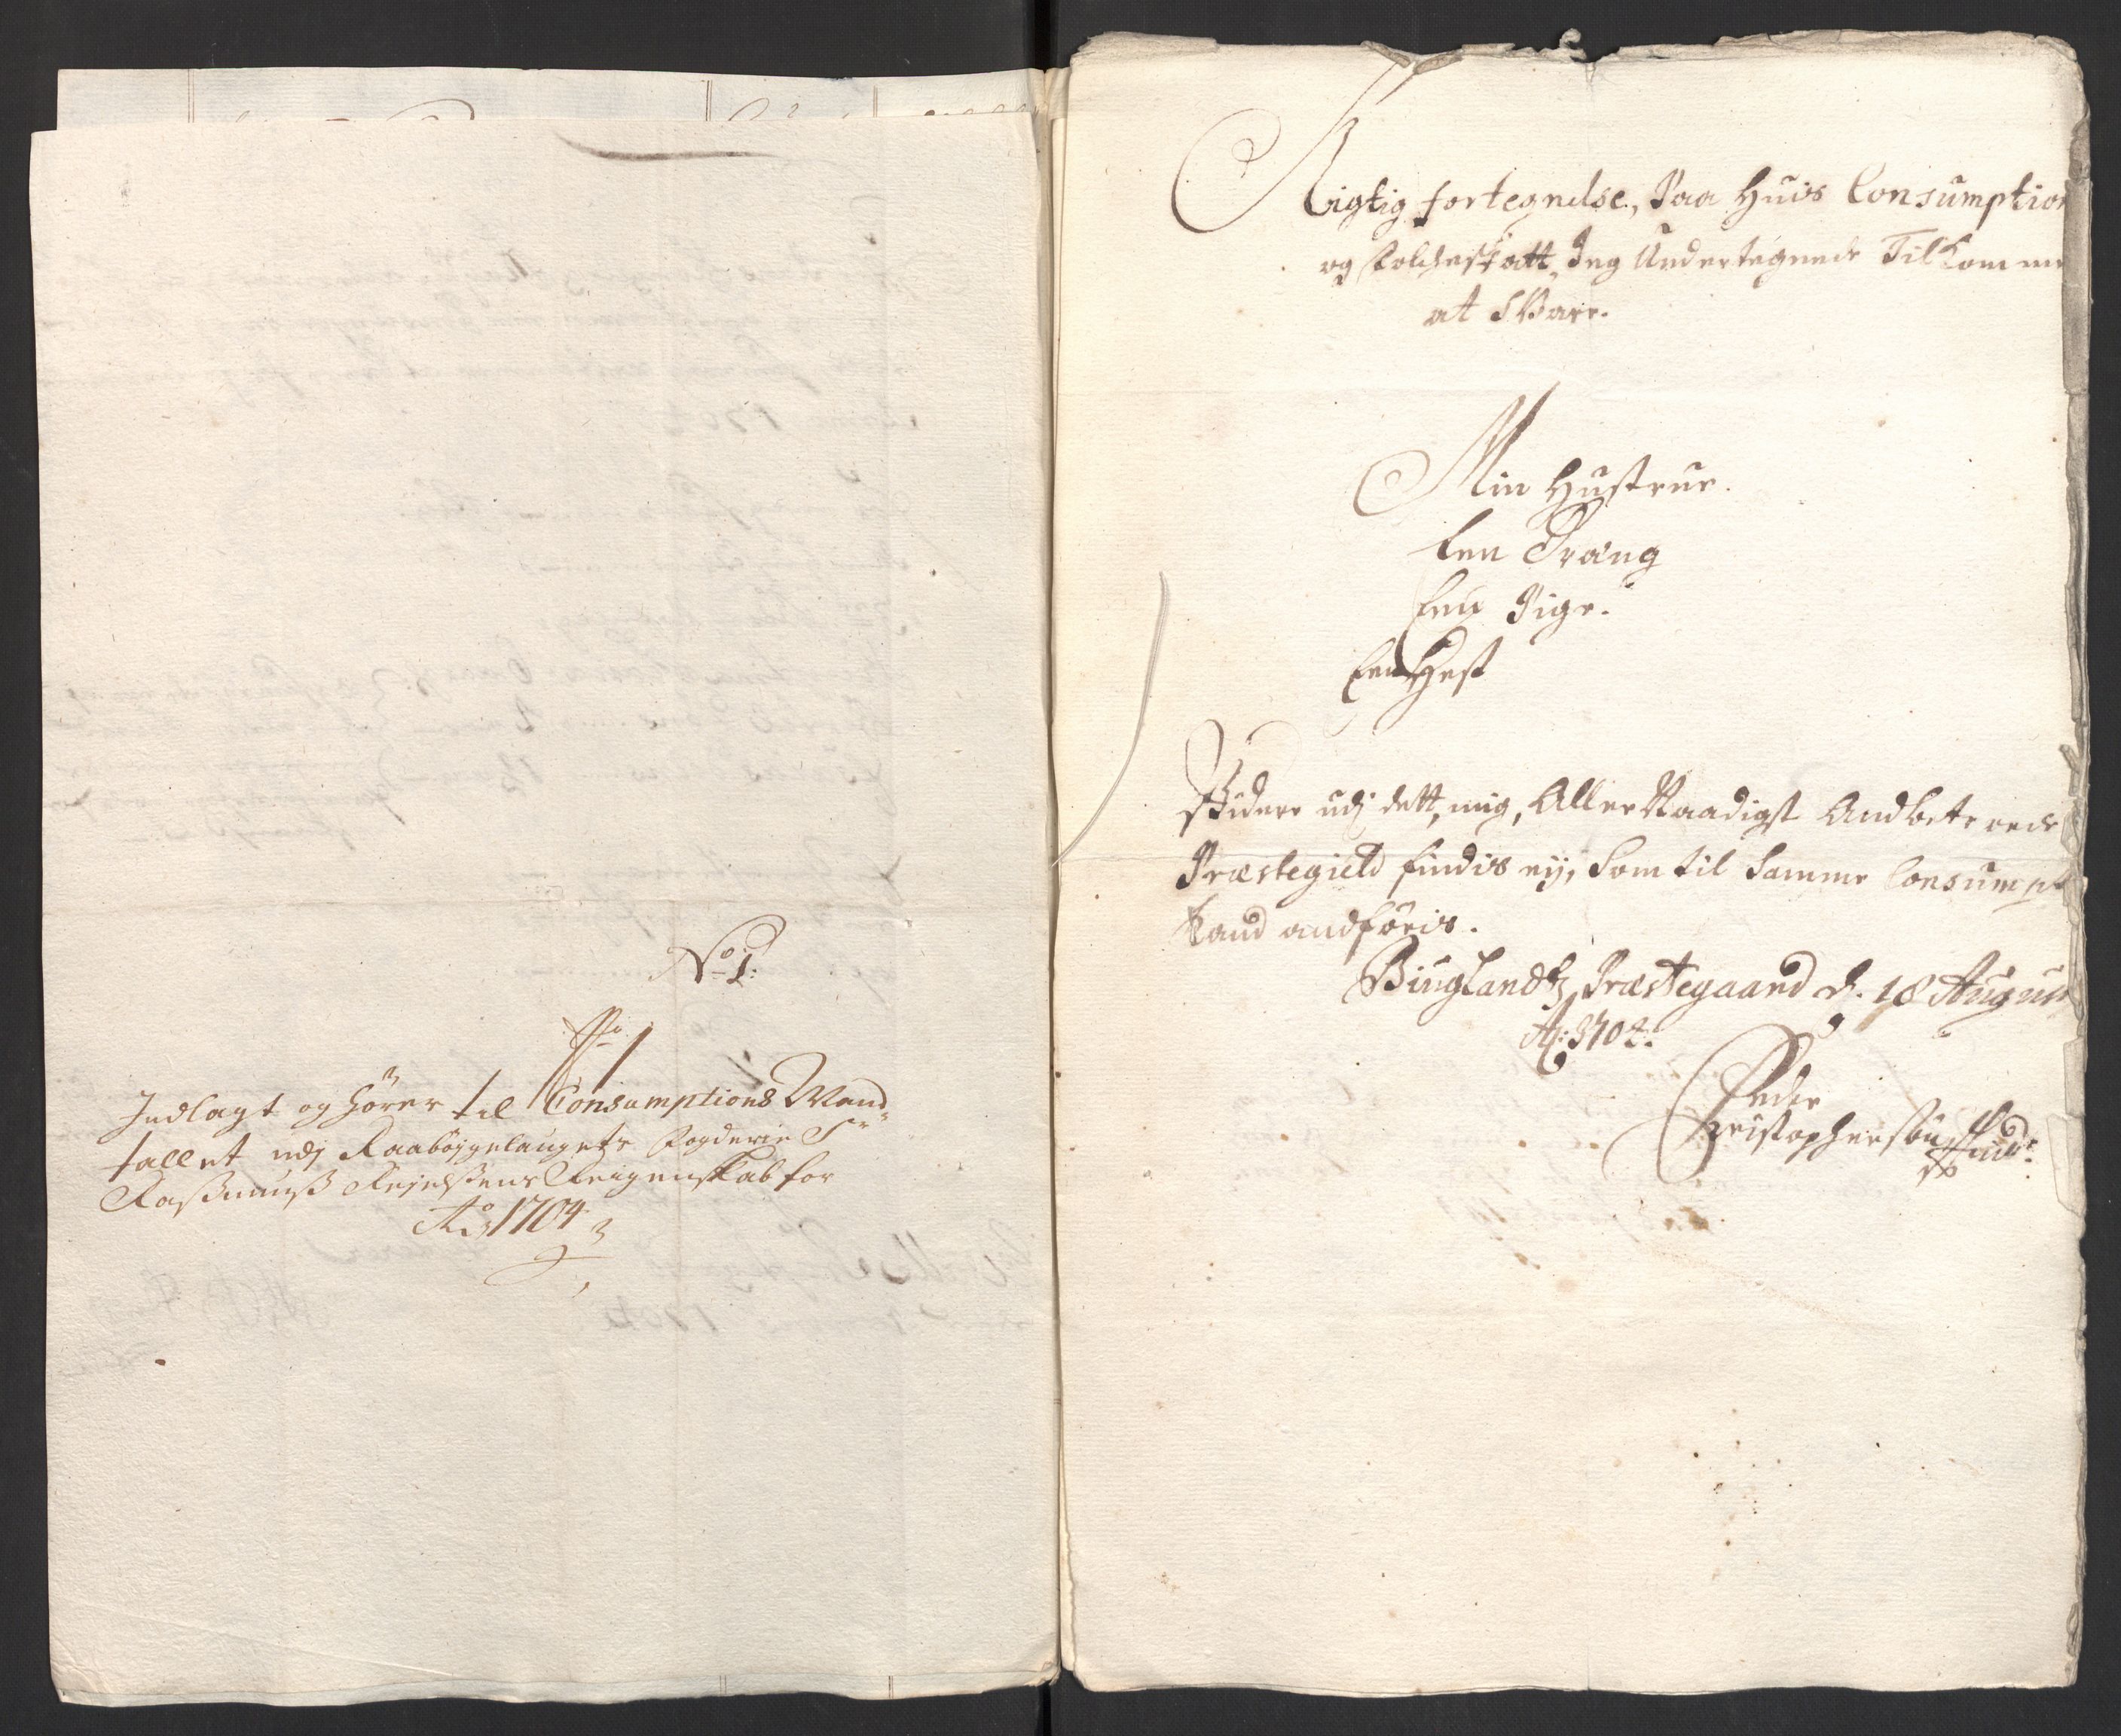 No 1:
Indlagt og hörer til Consumptions Mand-
tallet udj Raabøygelaugets Fogderie Sr
Rasmuuss Reyelssens Reigenskab for
Ao 1704
Rigtig fortegnelse, Paa Huis Consumption
og Folcheskatt, Jeg Undertegnede Tilkomme
at Svare.
Min Hustrue.
Een Dræng
Een Pige.
Een Hest
Videre udj dett, mig, Aller Naadigst Andbetroede
Præstegield findis ey, Som til Samme Consumpt
kand andföris.
Biuglandtz Præstegaard d. 18 August
Ao: 1704.
Peder
Christophersøn